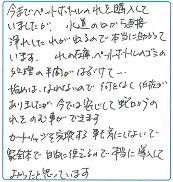 今までペットボトルの水を購入して
いましたが 水道の口から直接
浄水した水が出るので本当に助かって
います。 水の在庫、ペットボトルのゴミの
処理の手間がはぶけて…
始めは、はなれないので 何だなく 抵抗が
ありましたが 今では安心して 蛇口からの
水をのむ事ができます
カートリッジを交換する事も苦にしないで
安全体で 自由に使えるので 本当に 導入して
よかったと思っています